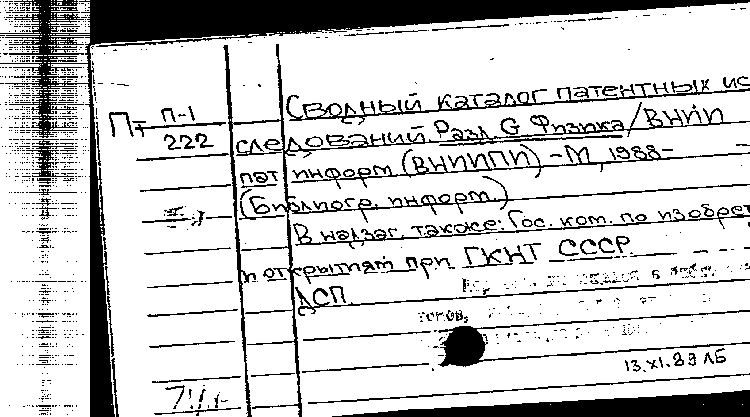 Пт П-1
222
Сводный каталог патентных ис
следований. Разд. G. Физика/ВНИИ
пат информ (ВНИИПИ) - М, 1988-
(Библиогр. информ.)
В надзаг. также: Гос. ком. по изобрет
и открытиям при ГКНТ СССР
ДСП.
13.XI.89 ЛБ